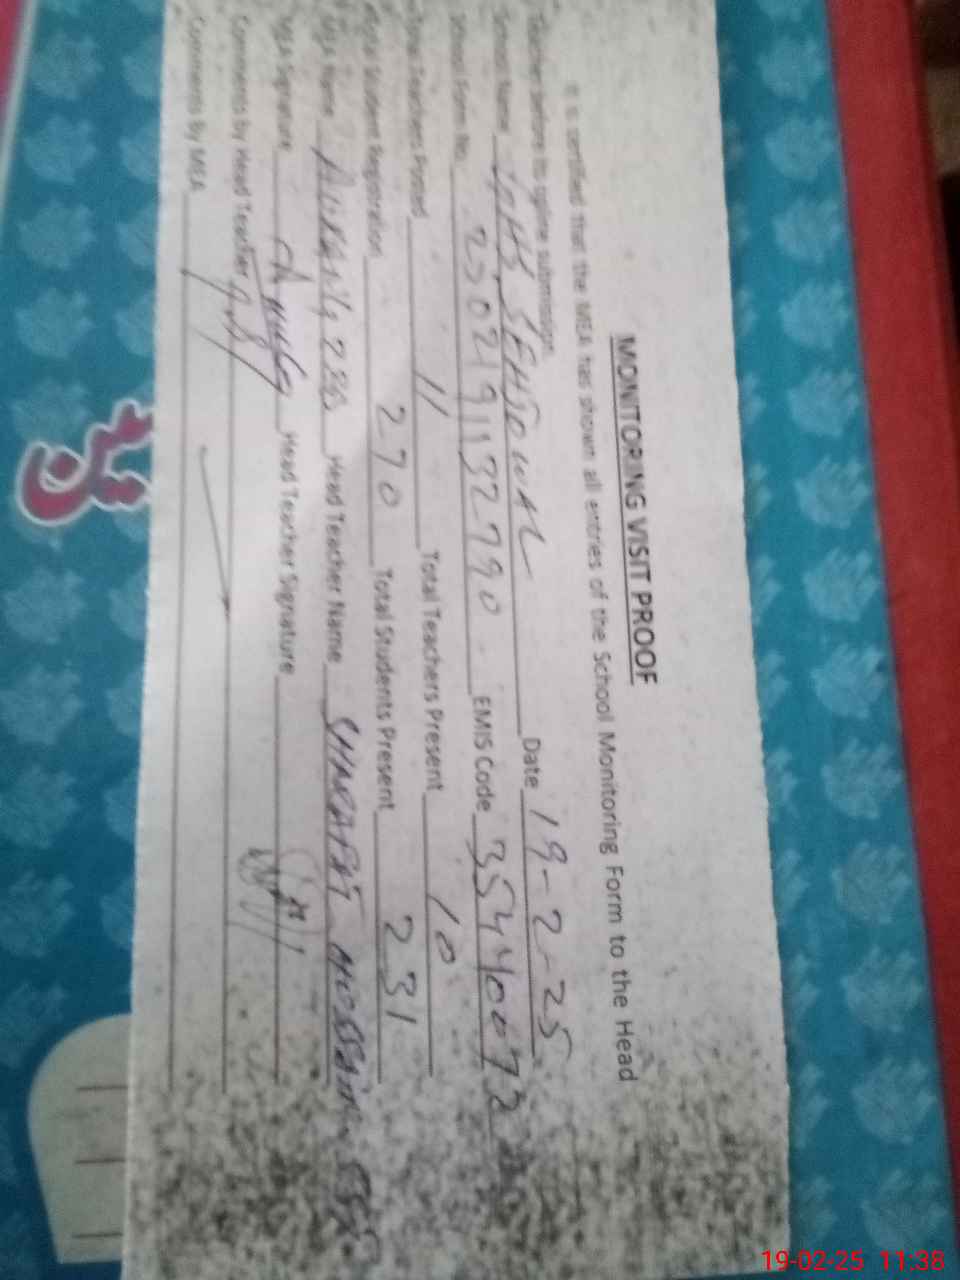 MONITORING VISIT PROOF
It is certified that the MEA has shown all entries of the School Monitoring Form to the Head
Teacher before its online submission.
School Name GHS SEHJOWAL Date 19-2-25
Visual Form No. 25021911132790 EMIS Code 35440073
Total Teachers Posted 11 Total Teachers Present 10
Total Student Registration 270 Total Students Present 231
Name Head Teacher Name SHRAFAT HUSSAIN
Signature Head Teacher Signature
Comments by Head Teacher
Comments By MEA
19-02-25 11:38